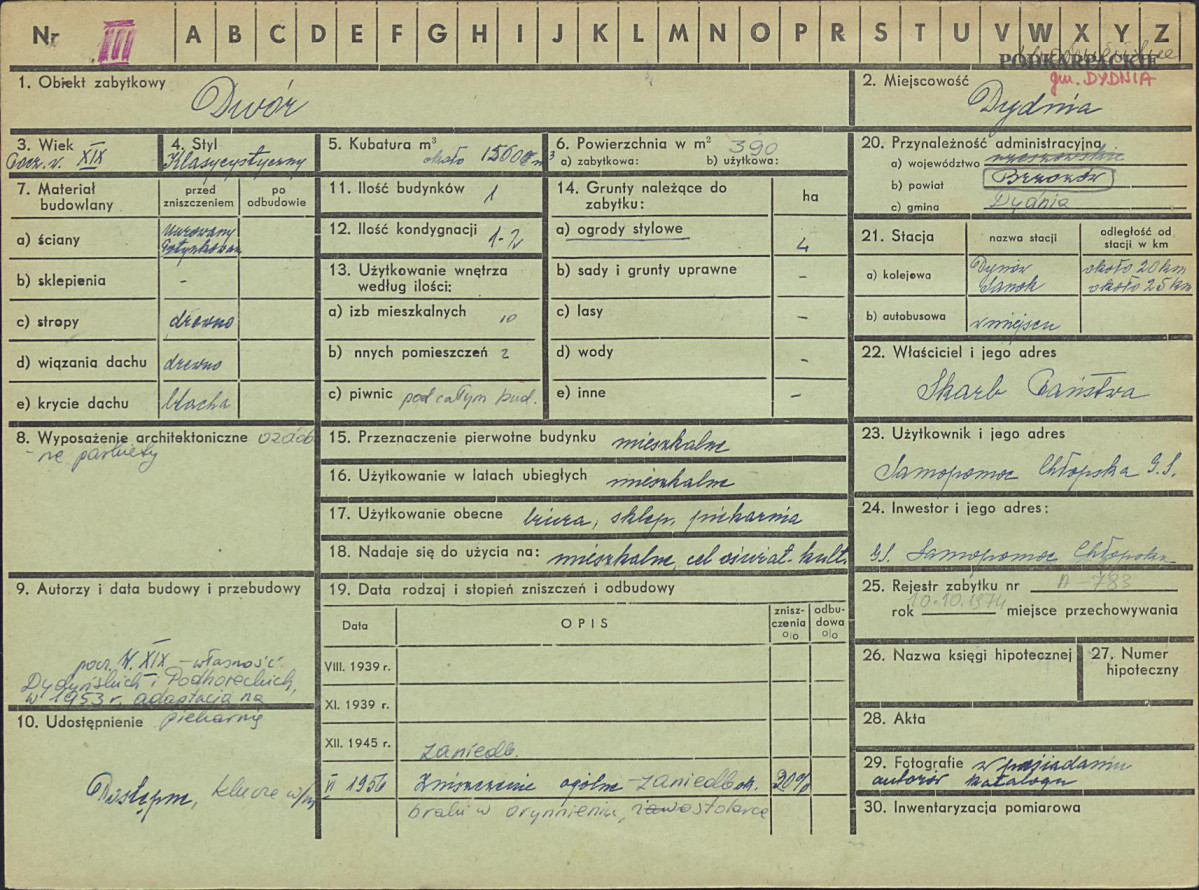 Nr III A B C D E F G H I J K L M N O P R S T U V W X Y Z
PODKARPACKIE
gm. DYDNIA
1. Obiekt zabytkowy
Dwór
2. Miejscowość
Dydnia
3. Wiek
Pocz. w. XIX
4. Styl
Klasycystyczny
5. Kubatura m³
około 15600 m³
6. Powierzchnia w m² 390
a) zabytkowa: b) użytkowa:
7. Materiał budowlany
przed zniszczeniem
po odbudowie
a) ściany
murowany
otynkowan
b) sklepienia -
c) stropy drewno
d) wiązania dachu drewno
e) krycie dachu blacha
8. Wyposażenie architektoniczne ozdob
-ne parkiety
9. Autorzy i data budowy i przebudowy
pocz. W. XIX - własność
Dydyńskich i Podhoreckich,
w 1953 r. adaptacja na
piekarnię
10. Udostępnienie
Dostępne, klucze w/m
11. Ilość budynków 1
12. Ilość kondygnacji 1-2
13. Użytkowanie wnętrza
według ilości:
a) izb mieszkalnych 10
b) nnych pomieszczeń 2
c) piwnic pod całym bud.
14. Grunty należące do
zabytku:
ha
a) ogrody stylowe 4
b) sady i grunty uprawne -
c) lasy -
d) wody -
e) inne -
15. Przeznaczenie pierwotne budynku mieszkalne
16. Użytkowanie w latach ubiegłych mieszkalne
17. Użytkowanie obecne biura, sklep, piekarnia
18. Nadaje się do użycia na: mieszkalne, cel oświat. kult.
19. Data rodzaj i stopień zniszczeń i odbudowy
Data
OPIS
znisz-
czenia
o/o
odbu-
dowa
o/o
VIII. 1939 r.
XI. 1939 r.
XII. 1945 r. zaniedb.
VI 1956 Zniszczenie ogólne zaniedb. ok. 20%
braki w orynnieniu, stolarce
20. Przynależność administracyjna
a) województwo rzeszowskie
b) powiat Brzozów
c) gmina Dydnia
21. Stacja
nazwa stacji
odległość od
stacji w km
a) kolejowa
Dynów około 20 km
Sanok około 25 km
b) autobusowa w miejscu
22. Właściciel i jego adres
Skarb Państwa
23. Użytkownik i jego adres
Samopomoc Chłopska G.S.
24. Inwestor i jego adres:
GS Samopomoc Chłopska
25. Rejestr zabytku nr A-783
rok 10.10.1974 miejsce przechowywania
26. Nazwa księgi hipotecznej
27. Numer
hipoteczny
28. Akta
29. Fotografie w posiadaniu
autorów katalogu
30. Inwentaryzacja pomiarowa